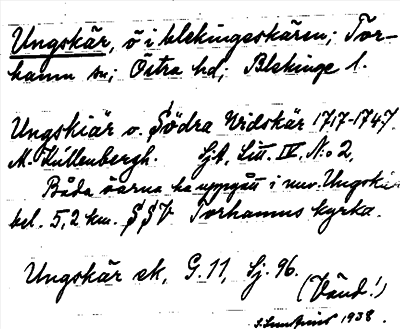 Ungskär, ö i blekingeskären; Tor-
hamn sn; Östra hd; Blekinge l.
Ungskiär o. Södra Vidskär 1717-1747.
M. Kullenbergh. Sjt. Litt. IV. No 2.
Båda öarna ha uppgått i nuv. Ungskär
bel. 5,2 km. SSV Torhamns kyrka.
Ungskär ek, G. 11, Sj. 96.
(Vänd!)
1938.